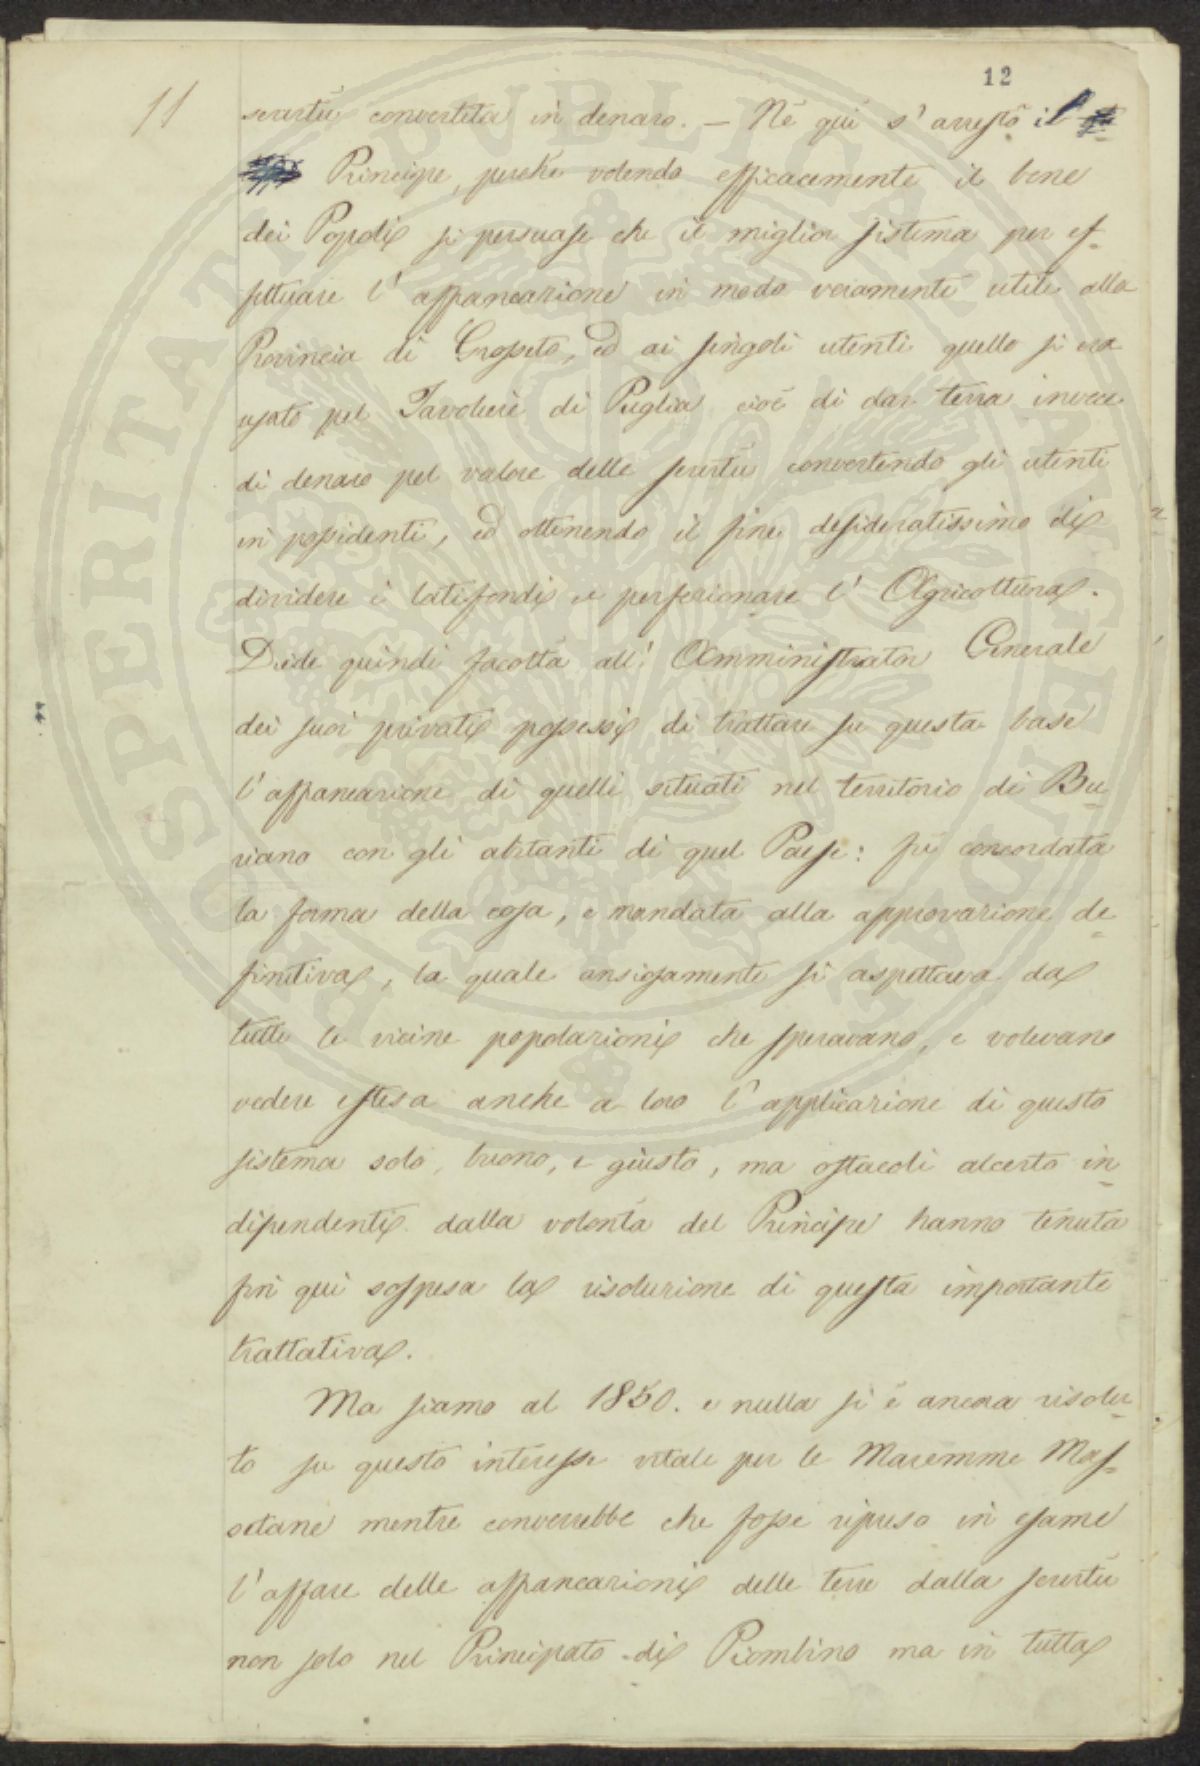 12
11
servitù convertita in denaro. — Nè quì s' arrestò il
Principe, perchè volendo efficacemente il bene
dei Popoli si persuase che il miglior sistema per ef-
fettuare l' affrancazione in modo veramente utile alla
Provincia di Grosseto, ed ai singoli utenti quello si era
usato pel Tavoliere di Puglia cioè di dar terra invece
di denaro pel valore delle servitù convertendo gli utenti
in possidenti, ed ottenendo il fine desideratissimo di
dividere i latifondi e perfezionare l' Agricoltura.
Diede quindi facoltà all' Amministrator Generale
dei suoi privati possessi di trattare su questa base
l' affrancazione di quelli situati nel territorio di Bu-
riano con gli abitanti di quel Paese: fù concordata
la forma della cosa, e mandata alla approvazione de-
finitiva, la quale ansiosamente si aspettava da
tutte le vicine popolazioni che speravano, e volevano
vedere estesa anche a loro l' applicazione di questo
sistema solo, buono, e giusto, ma ostacoli alcerto in-
dipendenti dalla volontà del Principe hanno tenuta
fin quì sospesa la risoluzione di questa importante
trattativa.
Ma siamo al 1850. e nulla si è ancora risolu-
to su questo interesse vitale per le Maremme Mas-
setane mentre converrebbe che fosse ripreso in esame
l' affare delle affrancazioni delle terre dalla servitù
non solo nel Principato di Piombino ma in tutta
PROSPERITATI PVBLICAE AVGENDAE